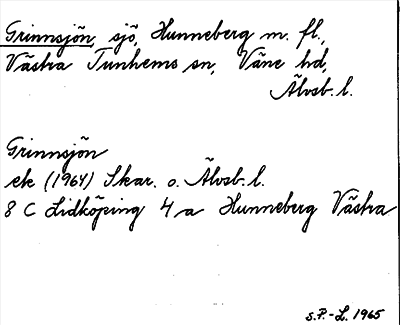 Grinnsjön, sjö, Hunneberg m. fl.,
Västra Tunhems sn, Väne hd,
Älvsb. l.
Grinnsjön
ek (1964) Skar. o. Älvsb. l.
8 C Lidköping 4 a Hunneberg Västra
S.P.-L. 1965